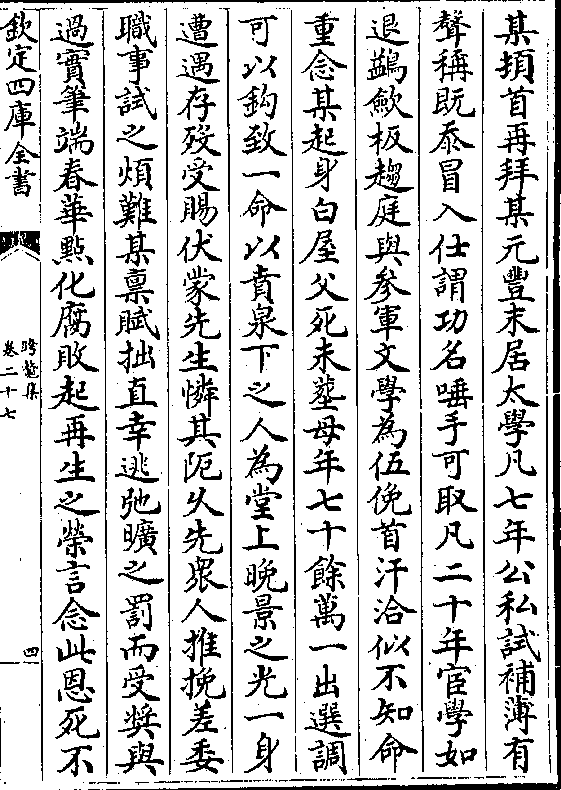 某頓首再拜某元豐末居太學凡七年公私試補薄有
聲稱既忝冒入仕謂功名唾手可取凡二十年宦學如
退鷁歛板趨庭與參軍文學為伍俛首汗洽似不知命
重念某起身白屋父死未塟母年七十餘萬一出選調
可以鈎致一命以賁泉下之人為堂上晚景之光一身
遭遇存歿受賜伏蒙先生憐其阨乆先衆人推挽差委
職事試之煩難某稟賦拙直幸逃弛曠之罰而受奨與
過實筆端春華㸃化腐敗起再生之榮言念此恩死不
欽定四庫全書
跨鼇集
卷二十七
四